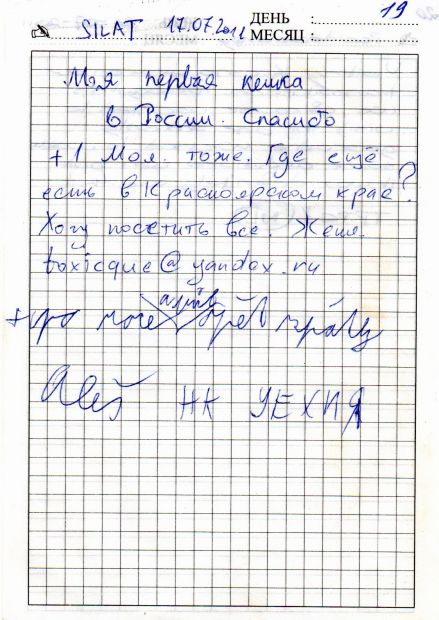 19
SILAT 17.07.2012
ДЕНЬ :
МЕСЯЦ :
Моя первая кешка
в России. Спасибо
+1 Моя. тоже. Где ещё
есть в Красноярском крае?
Хочу посетить все. Женя.
toxicque@yandex.ru
НК УЕХИЯ